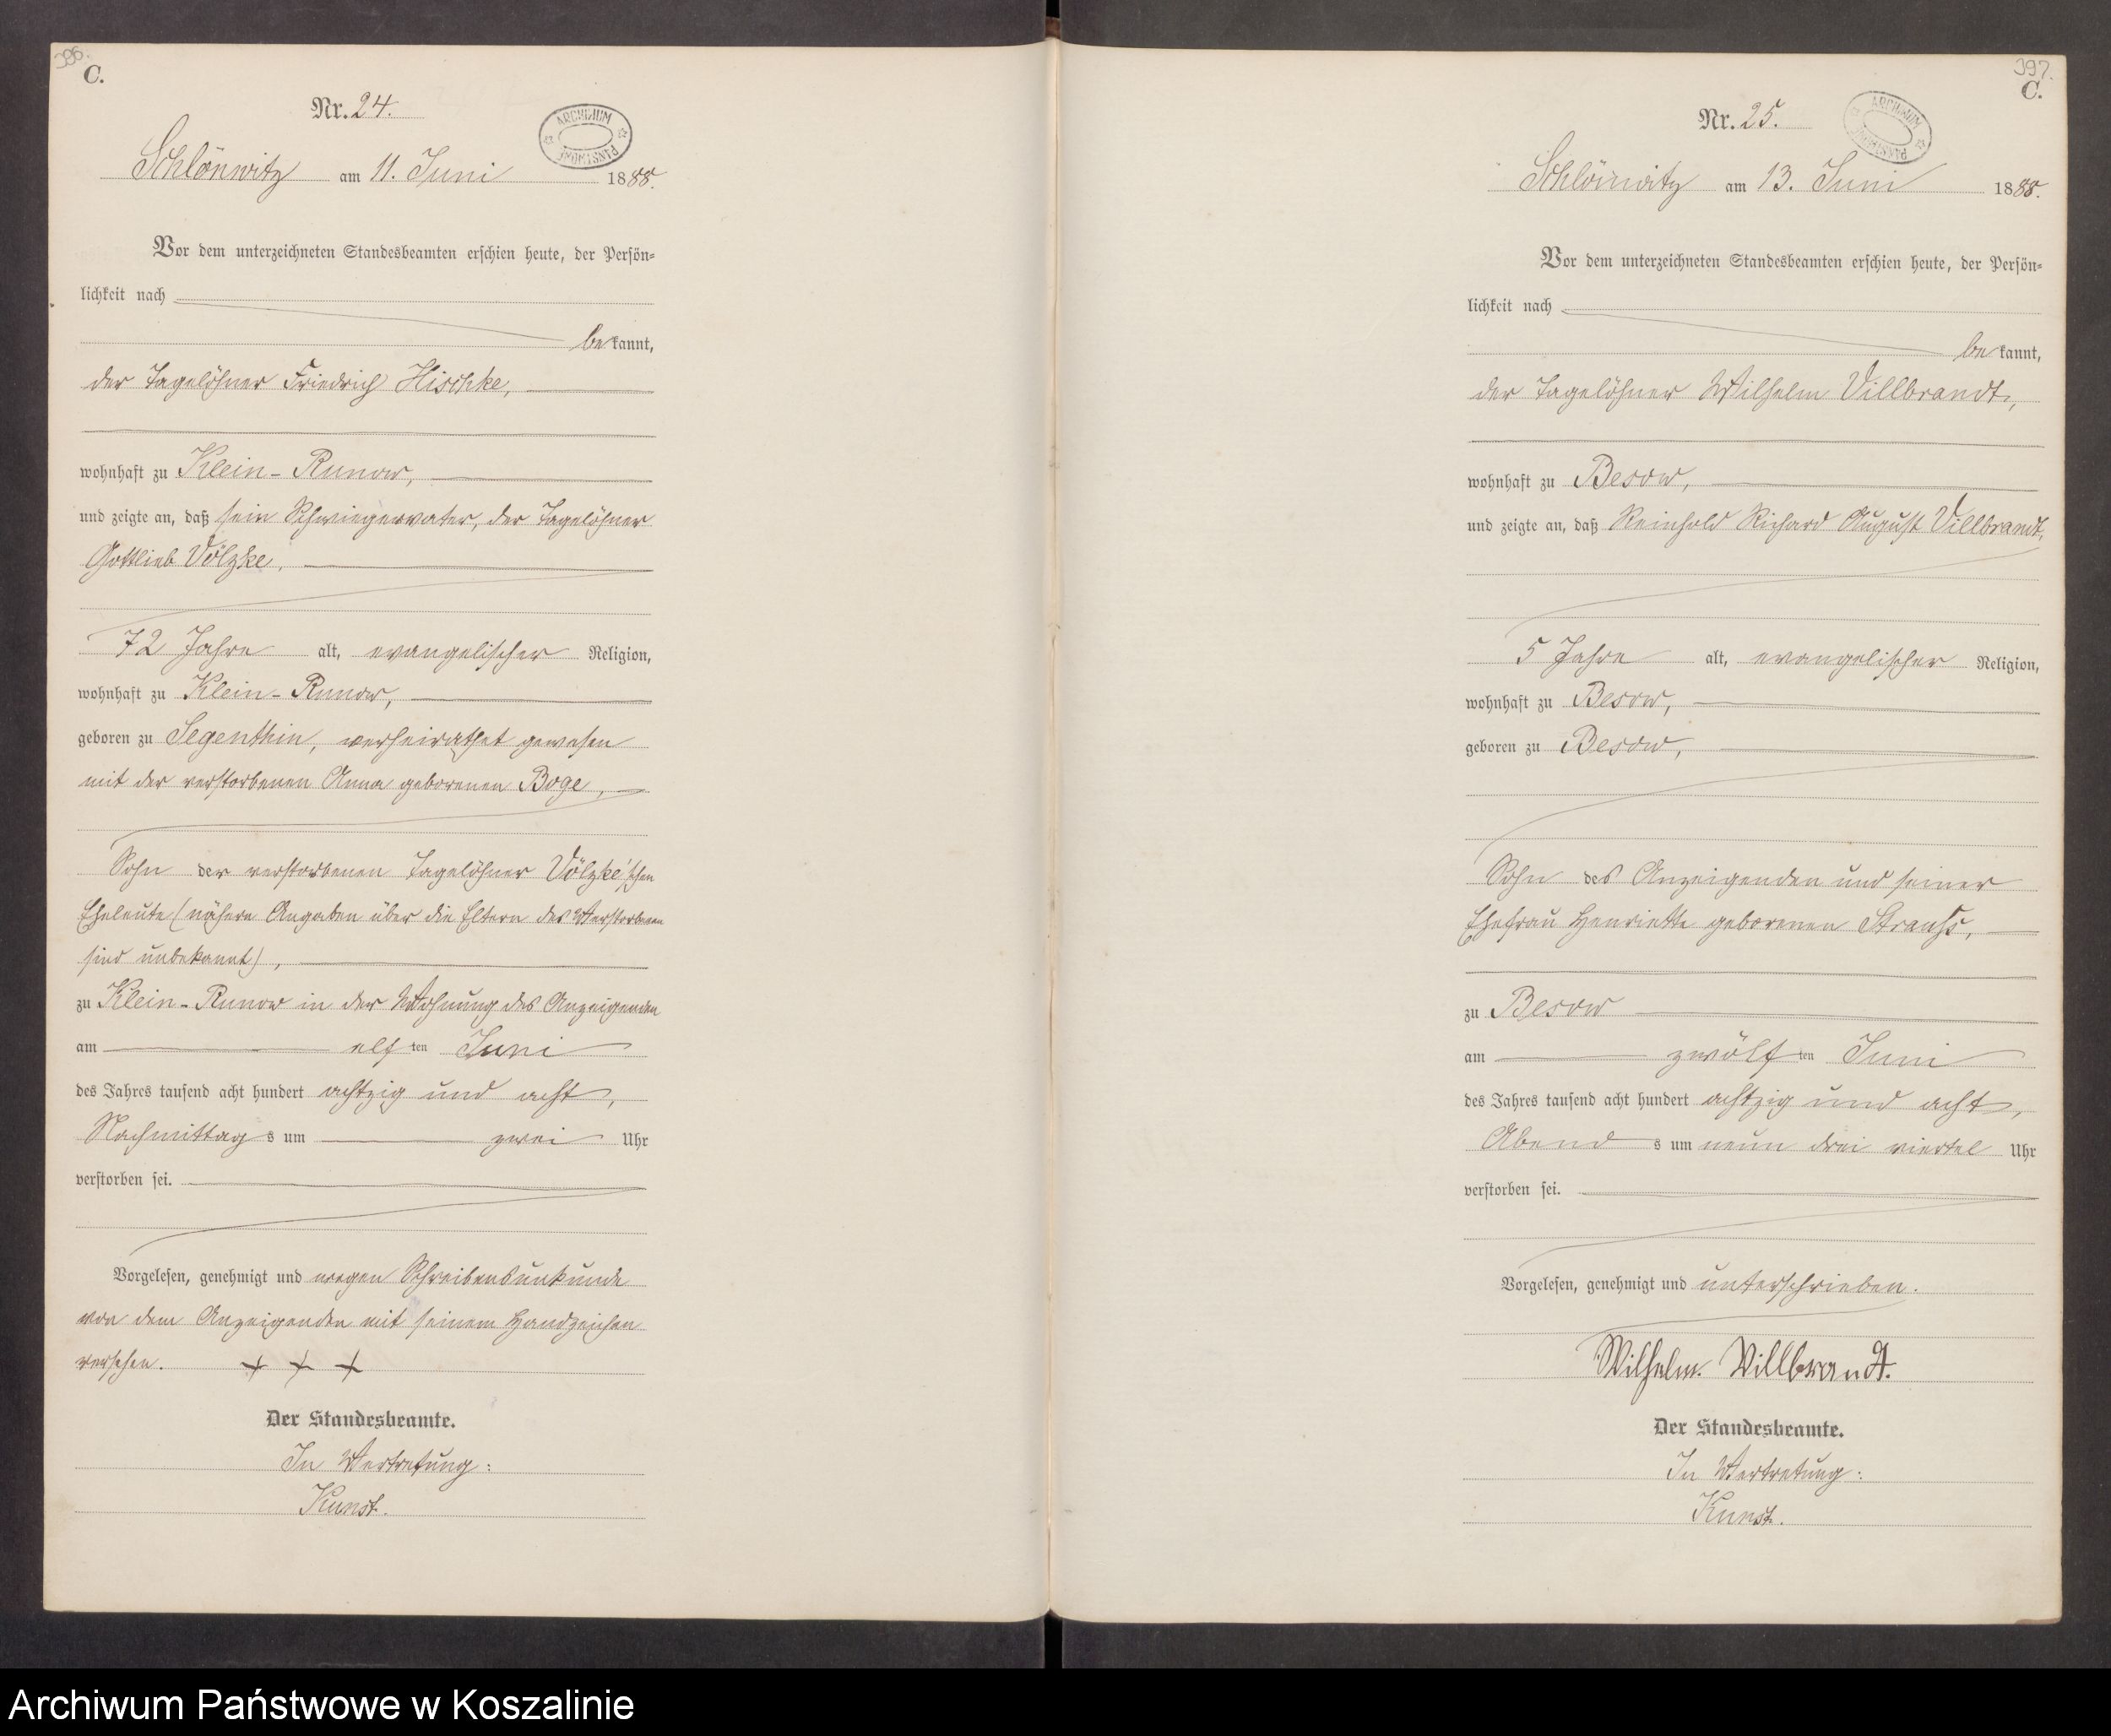 396.
C.
Nr. 24.
ARCHIWUM PAŃSTWOWE
Schlönwitz am 11. Juni 1888.
Vor dem unterzeichneten Standesbeamten erschien heute, der Persön=
lichkeit nach
bekannt,
der Tagelöhner Friedrich Hischke,
wohnhaft zu Klein-Runow,
und zeigte an, daß sein Schwiegervater, der Tagelöhner
Gottlieb Völzke,
72 Jahre alt, evangelischer Religion,
wohnhaft zu Klein-Runow,
geboren zu Segenthin, verheirathet gewesen
mit der verstorbenen Anna geborenen Boge,
Sohn der verstorbenen Tagelöhner Völzke'schen
Eheleute (nähere Angaben über die Eltern des Verstorbenen
sind unbekannt),
zu Klein-Runow in der Wohnung des Anzeigenden
am elften Juni
des Jahres tausend acht hundert achtzig und acht,
Nachmittags um zwei Uhr
verstorben sei.
Vorgelesen, genehmigt und wegen Schreibensunkunde
von dem Anzeigenden mit seinem Handzeichen
versehen. + + +
Der Standesbeamte.
In Vertretung:
Kunst.
397.
C.
Nr. 25.
ARCHIWUM PAŃSTWOWE
Schlönwitz am 13. Juni 1888.
Vor dem unterzeichneten Standesbeamten erschien heute, der Persön=
lichkeit nach
bekannt,
der Tagelöhner Wilhelm Villbrandt,
wohnhaft zu Besow,
und zeigte an, daß Reinhold Richard August Villbrandt,
5 Jahre alt, evangelischer Religion,
wohnhaft zu Besow,
geboren zu Besow,
Sohn des Anzeigenden und seiner
Ehefrau Henriette geborenen Strauß,
zu Besow
am zwölften Juni
des Jahres tausend acht hundert achtzig und acht,
Abends um neun drei viertel Uhr
verstorben sei.
Vorgelesen, genehmigt und unterschrieben.
Wilhelm. Villbrandt.
Der Standesbeamte.
In Vertretung:
Kunst.
Archiwum Państwowe w Koszalinie